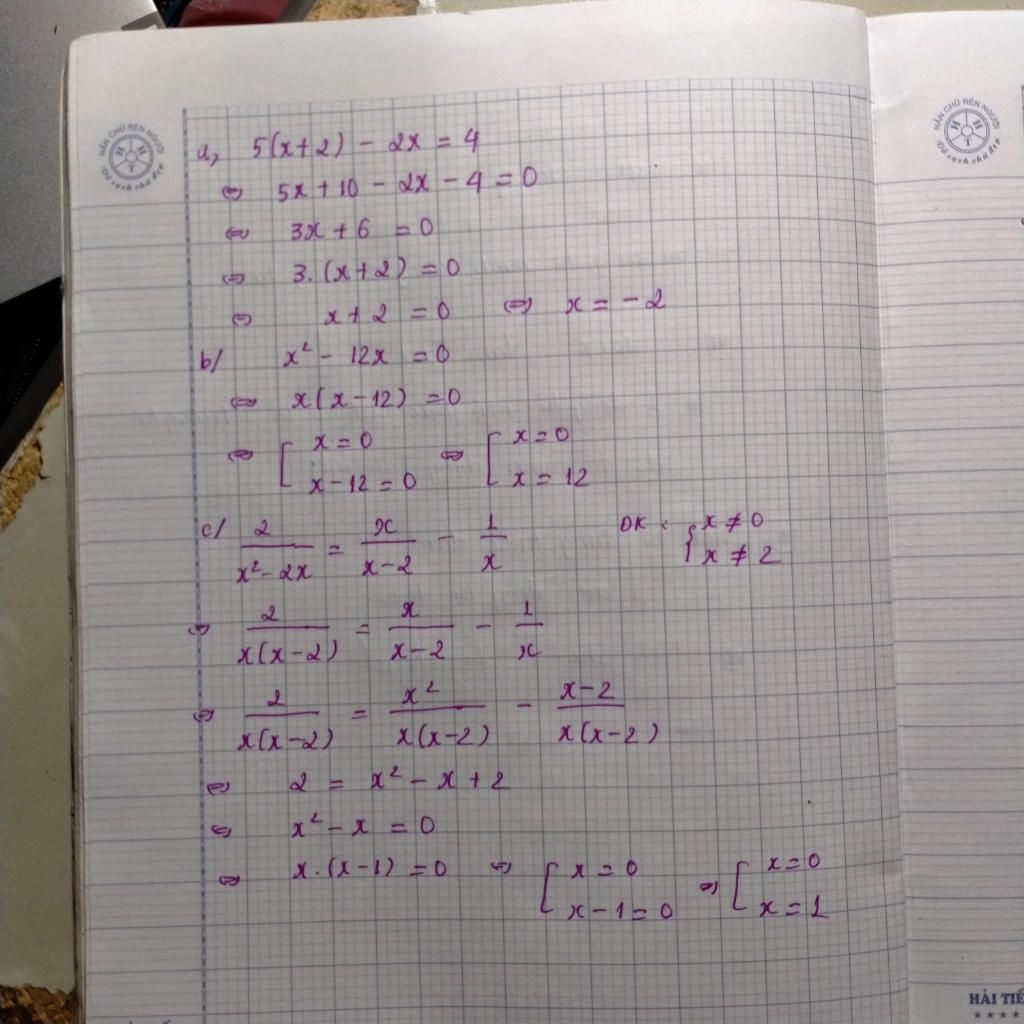 NẮN CHỮ RÈN NGƯỜI
H H T
Vở sạch chữ đẹp
a, 5(x+2) - 2x = 4
⇔ 5x + 10 - 2x - 4 = 0
⇔ 3x + 6 = 0
⇔ 3.(x+2) = 0
⇔ x + 2 = 0 ⇔ x = -2
b/ x² - 12x = 0
⇔ x(x-12) = 0
⇔ [ x = 0 ; x - 12 = 0 ⇔ [ x = 0 ; x = 12
c/ 2/(x²-2x) = x/(x-2) - 1/x ĐK : { x ≠ 0 ; x ≠ 2
⇔ 2/(x(x-2)) = x/(x-2) - 1/x
⇔ 2/(x(x-2)) = x²/(x(x-2)) - (x-2)/(x(x-2))
⇔ 2 = x² - x + 2
⇔ x² - x = 0
⇔ x.(x-1) = 0 ⇔ [ x = 0 ; x - 1 = 0 ⇔ [ x = 0 ; x = 1
NẮN CHỮ RÈN NGƯỜI
H H T
Vở sạch chữ đẹp
HẢI TIẾ